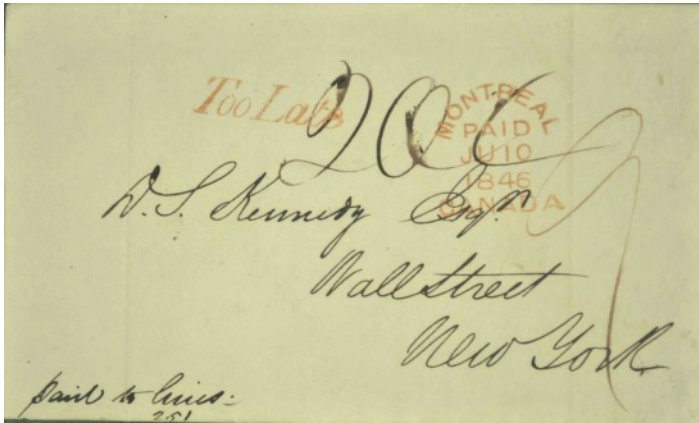 Too Late
20 c
MONTREAL
PAID
JU 10
1846
CANADA
D. S. Kennedy Esqr.
Wall Street
New York
paid to lines.
251